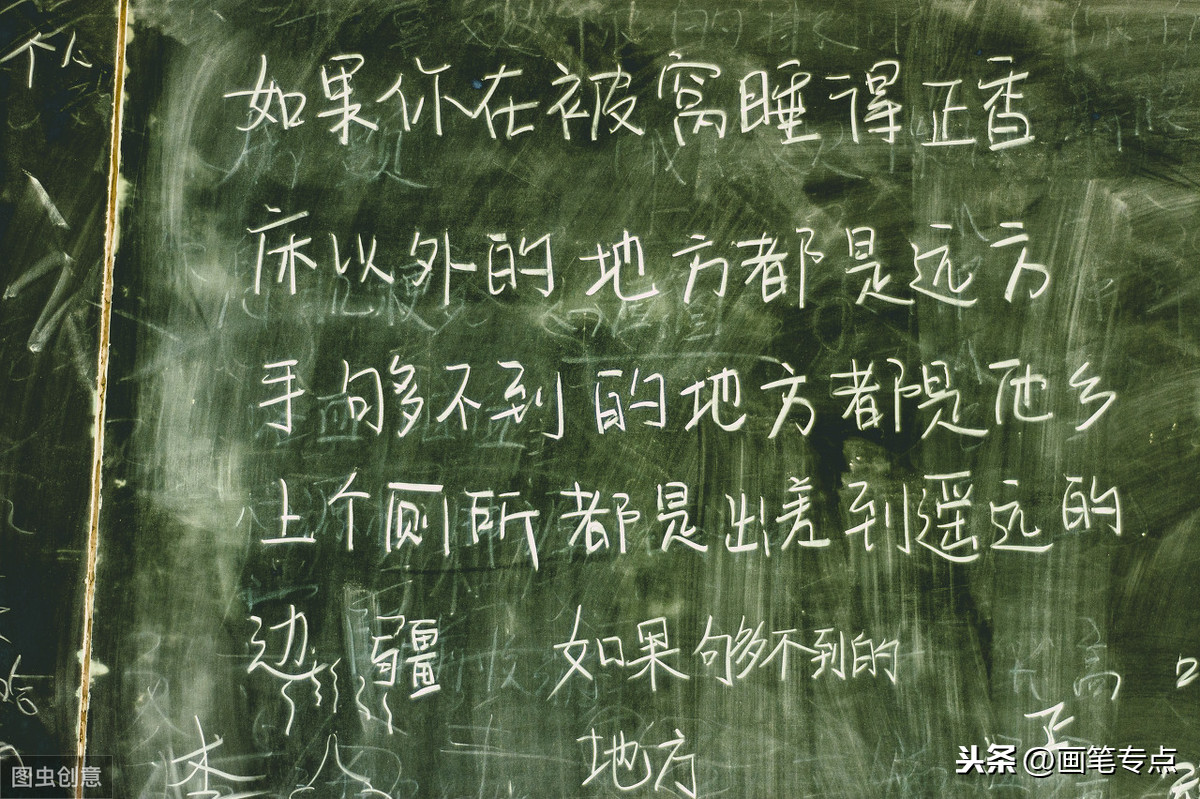 个人
如果你在被窝睡得正香
床以外的地方都是远方
手够不到的地方都是他乡
上个厕所都是出差到遥远的
边疆 如果够不到的
地方
图虫创意
头条 @画笔专点